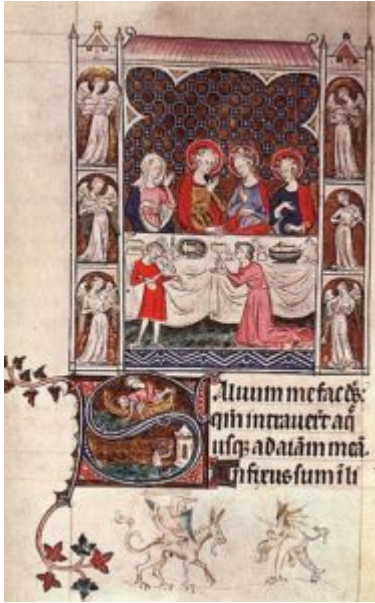 Saluum me fac ds:
qm intrauert aq̄
usq; ad aiam meā.
Infixus sum ī li